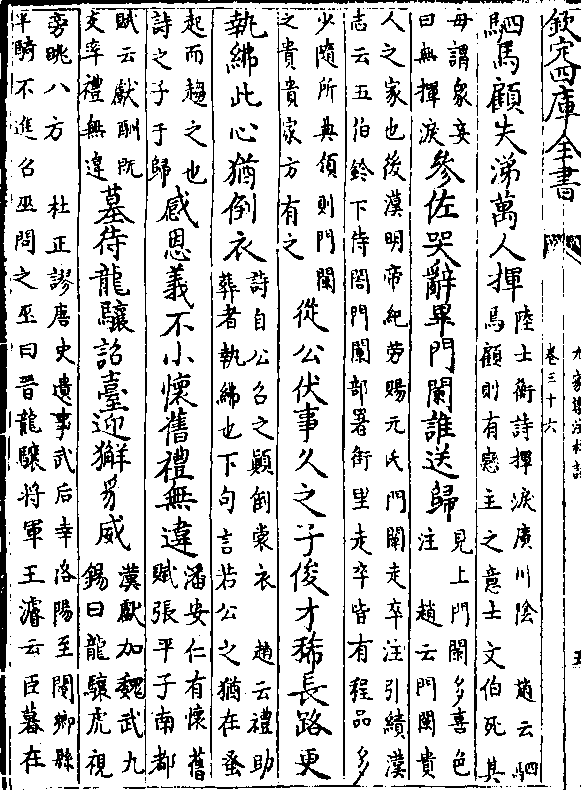 欽定四庫全書
九家集注杜詩
卷三十六
五
駟馬顧失涕萬人揮
陸士衡詩揮淚廣川陰 趙云駟
馬顧則有戀主之意士文伯死其
母謂衆妾
曰無揮淚
參佐哭辭畢門闌誰送歸
見上門闌多喜色
注 趙云門闌貴
人之家也後漢明帝紀勞賜元氏門闌走卒注引續漢
志云五伯鈴下侍閤門闌部署街里走卒皆有程品多
少隨所典領則門闌
之貴貴家方有之
從公伏事久之子俊才稀長路更
執紼此心猶倒衣
詩自公召之顛倒裳衣 趙云禮助
葬者執紼也下句言若公之猶在蚤
起而趨之也
詩之子于歸
感恩義不小懷舊禮無違
潘安仁有懷舊
賦張平子南都
賦云獻酬既
交率禮無違
墓待龍驤詔臺迎獬豸威
漢獻加魏武九
錫曰龍驤虎視
旁眺八方 杜正謬唐史遺事武后幸洛陽至閿鄉縣
半騎不進召巫問之巫曰晉龍驤將軍王濬云臣墓在